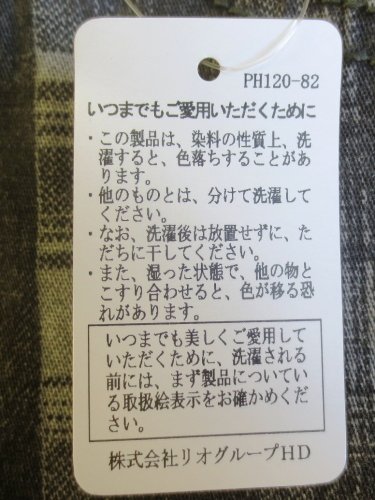 PH120-82
いつまでもご愛用いただくために
・この製品は、染料の性質上、洗
濯すると、色落ちすることがあ
ります。
・他のものとは、分けて洗濯して
ください。
・なお、洗濯後は放置せずに、た
だちに干してください。
・また、湿った状態で、他の物と
こすり合わせると、色が移る恐
れがあります。
いつまでも美しくご愛用して
いただくために、洗濯される
前には、まず製品についてい
る取扱絵表示をお確かめくだ
さい。
株式会社リオグループHD